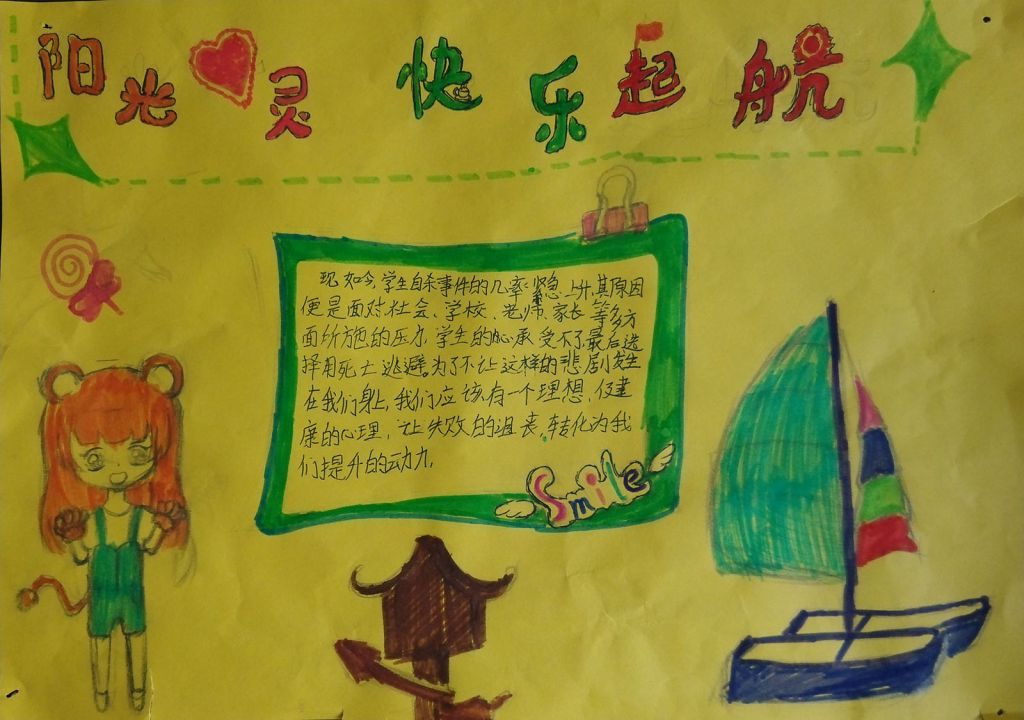 阳光心灵 快乐起航
现如今,学生自杀事件的几率紧急上升,其原因
便是面对社会、学校、老师、家长等多方
面所施的压力,学生的心承受不了最后选
择用死亡逃避,为了不让这样的悲剧发生
在我们身上,我们应该有一个理想,健
康的心理,让失败的沮丧,转化为我
们提升的动力。
Smile